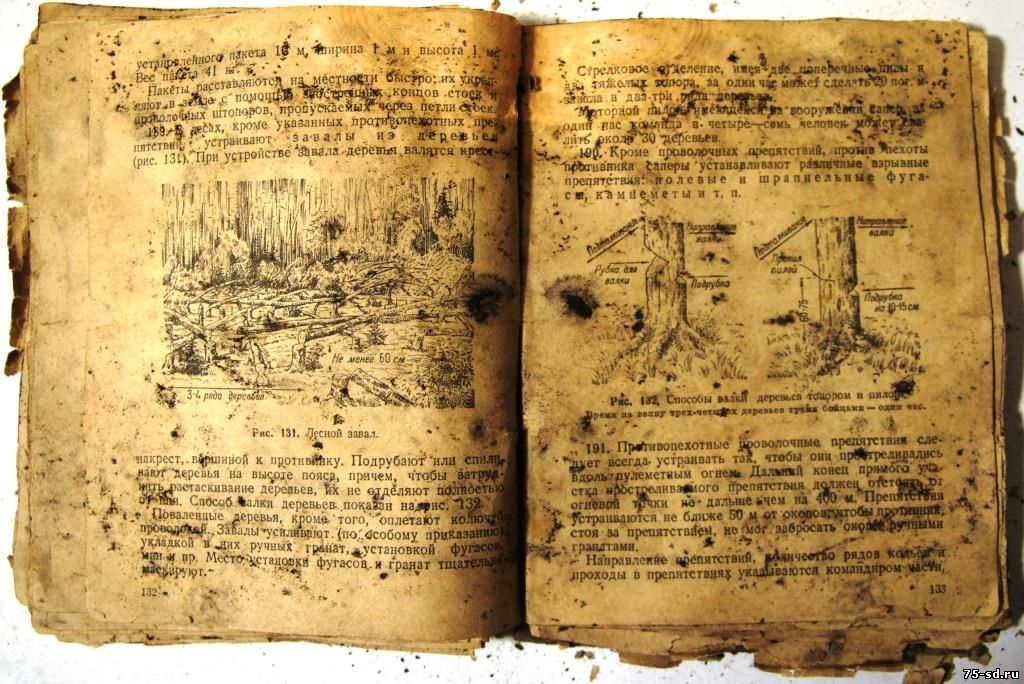 установленного пакета 10 м, ширина 1 м и высота 1 м.
Вес пакета 41 кг.
Пакеты расставляются на местности быстро; их укреп-
ляют в земле с помощью заостренных концов стоек и
проволочных штопоров, пропускаемых через петли стоек.
189. В лесах, кроме указанных противопехотных пре-
пятствий, устраивают завалы из деревьев
(рис. 131). При устройстве завала деревья валятся крест-
Не менее 60 см
3-4 ряда деревьев
Рис. 131. Лесной завал.
накрест, вершиной к противнику. Подрубают или спили-
вают деревья на высоте пояса, причем, чтобы затруд-
нить растаскивание деревьев, их не отделяют полностью
от пня. Способ валки деревьев показан на рис. 132.
Поваленные деревья, кроме того, оплетают колючей
проволокой. Завалы усиливают (по особому приказанию)
укладкой в них ручных гранат, установкой фугасов,
мин и пр. Место установки фугасов и гранат тщательно
маскируют.
132
Стрелковое отделение, имея две поперечные пилы и
два тяжелых топора, за один час может сделать 20 пог. м
завала в два-три ряда деревьев.
Моторной пилой, имеющейся на вооружении сапер, за
один час команда в четыре—семь человек может сва-
лить около 30 деревьев.
190. Кроме проволочных препятствий, против пехоты
противника саперы устанавливают различные взрывные
препятствия: полевые и шрапнельные фуга-
сы, камнеметы и т. п.
Подталкивание
Направление валки
Рубка для валки
Подрубка
Подталкивание
Направление валки
Пропил пилой
Подрубка на 10-15 см
60-75
Рис. 132. Способы валки деревьев топором и пилой.
Время на валку трех-четырех деревьев тремя бойцами — один час.
191. Противопехотные проволочные препятствия сле-
дует всегда устраивать так, чтобы они простреливались
вдоль пулеметным огнем. Дальний конец прямого уча-
стка простреливаемого препятствия должен отстоять от
огневой точки не дальше чем на 400 м. Препятствия
устраиваются не ближе 50 м от окопов, чтобы противник,
стоя за препятствием, не мог забросать окопы ручными
гранатами.
Направление препятствий, количество рядов кольев и
проходы в препятствиях указываются командиром части,
133
75-sd.ru